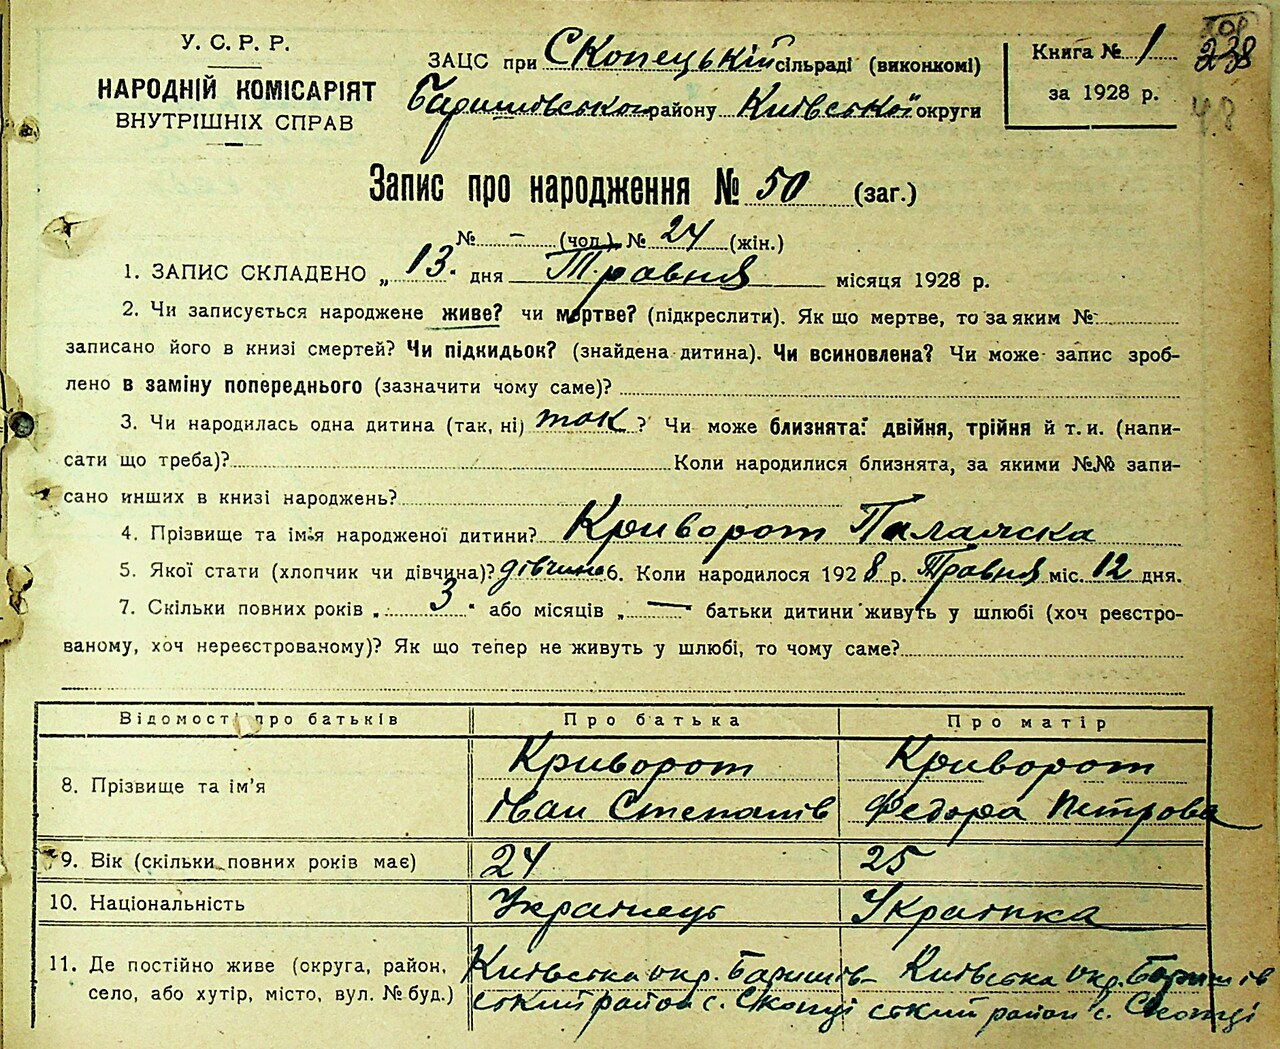 У. С. Р. Р.
НАРОДНІЙ КОМІСАРІЯТ
ВНУТРІШНІХ СПРАВ
ЗАЦС при Скопецькій сільраді (виконкомі)
Баришівського району Київської округи
Книга № 1
за 1928 р.
238
48
Запис про народження № 50 (заг.)
№ – (чол.) № 24 (жін.)
1. ЗАПИС СКЛАДЕНО „ 13. дня Травня місяця 1928 р.
2. Чи записується народжене живе? чи мертве? (підкреслити). Як що мертве, то за яким №
записано його в книзі смертей? Чи підкидьок? (знайдена дитина). Чи всиновлена? Чи може запис зроб-
лено в заміну попереднього (зазначити чому саме)?
3. Чи народилась одна дитина (так, ні) так ? Чи може близнята: двійня, трійня й т. и. (напи-
сати що треба)? Коли народилися близнята, за якими №№ запи-
сано инших в книзі народжень?
4. Прізвище та ім'я народженої дитини? Криворот Палажка
5. Якої стати (хлопчик чи дівчина)? дівчина 6. Коли народилося 1928 р. Травня міс. 12 дня.
7. Скільки повних років „ 3 " або місяців „ — " батьки дитини живуть у шлюбі (хоч реєстро-
ваному, хоч нереєстрованому)? Як що тепер не живуть у шлюбі, то чому саме?
Відомості про батьків Про батька Про матір
8. Прізвище та ім'я Криворот Іван Степанів Криворот Федора Петрова
9. Вік (скільки повних років має) 24 25
10. Національність Українець Українка
11. Де постійно живе (округа, район, Київська окр. Баришів- Київська окр. Баришів
село, або хутір, місто, вул. № буд.) ський район с. Скопці ський район с. Скопці